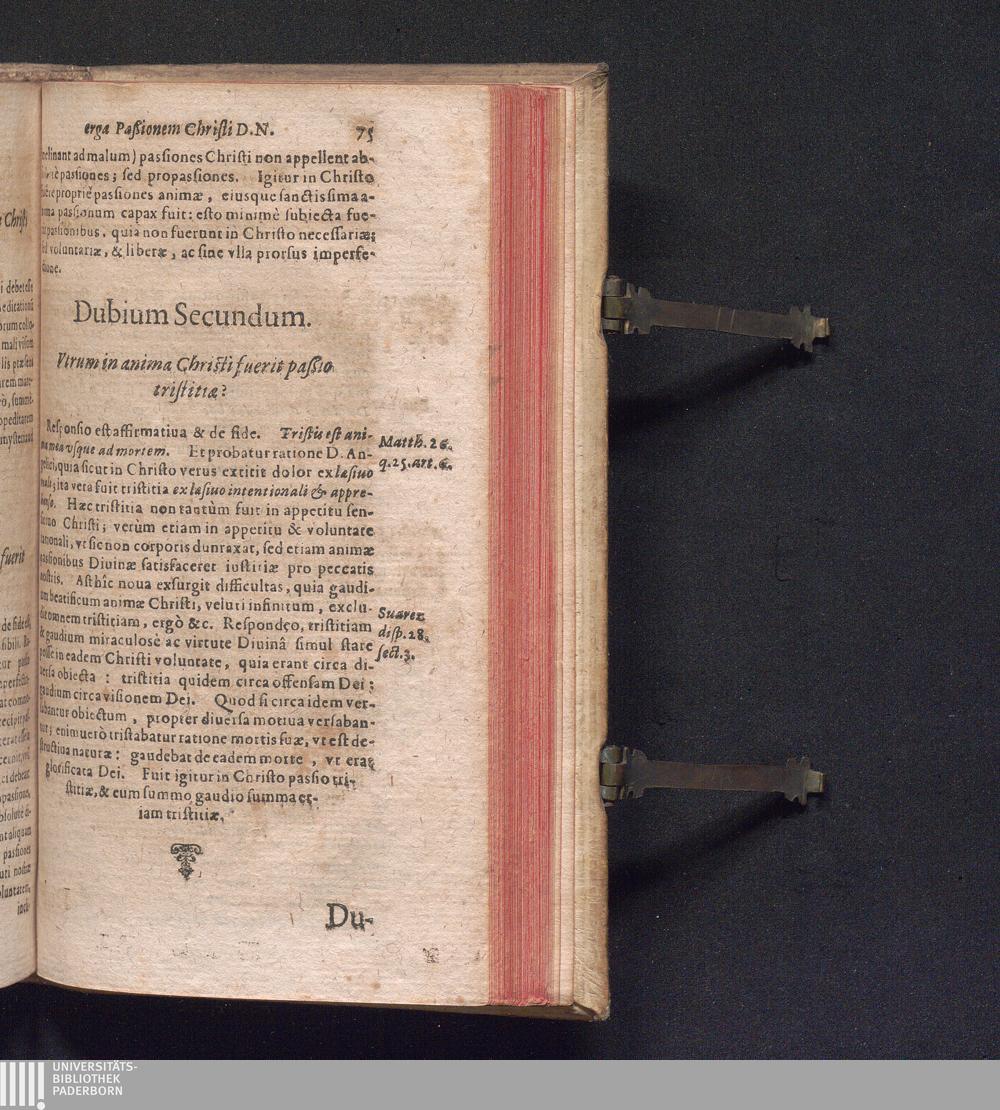 erga Paſsionem Chriſti D.N. 75
ad malum) paſsiones Chriſti non appellent ab-
paſsiones; ſed propaſsiones. Igitur in Chriſto
propriè paſsiones animæ, eiusque ſanctiſsima a-
paſsionum capax fuit: eſto minimè ſubiecta fue-
paſsionibus, quia non fuerunt in Chriſto neceſſariæ;
voluntariæ, & liberæ, ac ſine vlla prorſus imperfe-
ctione.
Dubium Secundum.
Vtrum in anima Chriſti fuerit paſsio
triſtitiæ?
Reſponſio eſt affirmatiua & de fide. Triſtis eſt ani-
ma mea vſque ad mortem. Et probatur ratione D. An-
gelici, quia ſicut in Chriſto verus extitit dolor ex læſiuo
ita vera fuit triſtitia ex læſiuo intentionali & appre-
henſo. Hæc triſtitia non tantùm fuit in appetitu ſen-
Chriſti; verùm etiam in appetitu & voluntate
rationali, vt ſic non corporis dunraxat, ſed etiam animæ
paſsionibus Diuinæ ſatisfaceret iuſtitiæ pro peccatis
noſtris. Aſthîc noua exſurgit difficultas, quia gaudi-
um beatificum animæ Chriſti, veluti infinitum, exclu-
dit omnem triſtitiam, ergò &c. Reſpondeo, triſtitiam
& gaudium miraculosè ac virtute Diuinâ ſimul ſtare
poſſe in eadem Chriſti voluntate, quia erant circa di-
uerſa obiecta: triſtitia quidem circa offenſam Dei;
gaudium circa viſionem Dei. Quod ſi circa idem ver-
ſabantur obiectum, propter diuerſa motiua verſaban-
tur; enimuerò triſtabatur ratione mortis ſuæ, vt eſt de-
ſtructiua naturæ: gaudebat de eadem morte, vt erat
glorificata Dei. Fuit igitur in Chriſto paſsio tri-
ſtitiæ, & cum ſummo gaudio ſumma et-
iam triſtitiæ.
Du-
Matth. 26.
q.25. art.6.
Suarez
diſp.28.
ſect.3.
a Chriſti
i debet eſſe
fuerit
UNIVERSITÄTS-
BIBLIOTHEK
PADERBORN